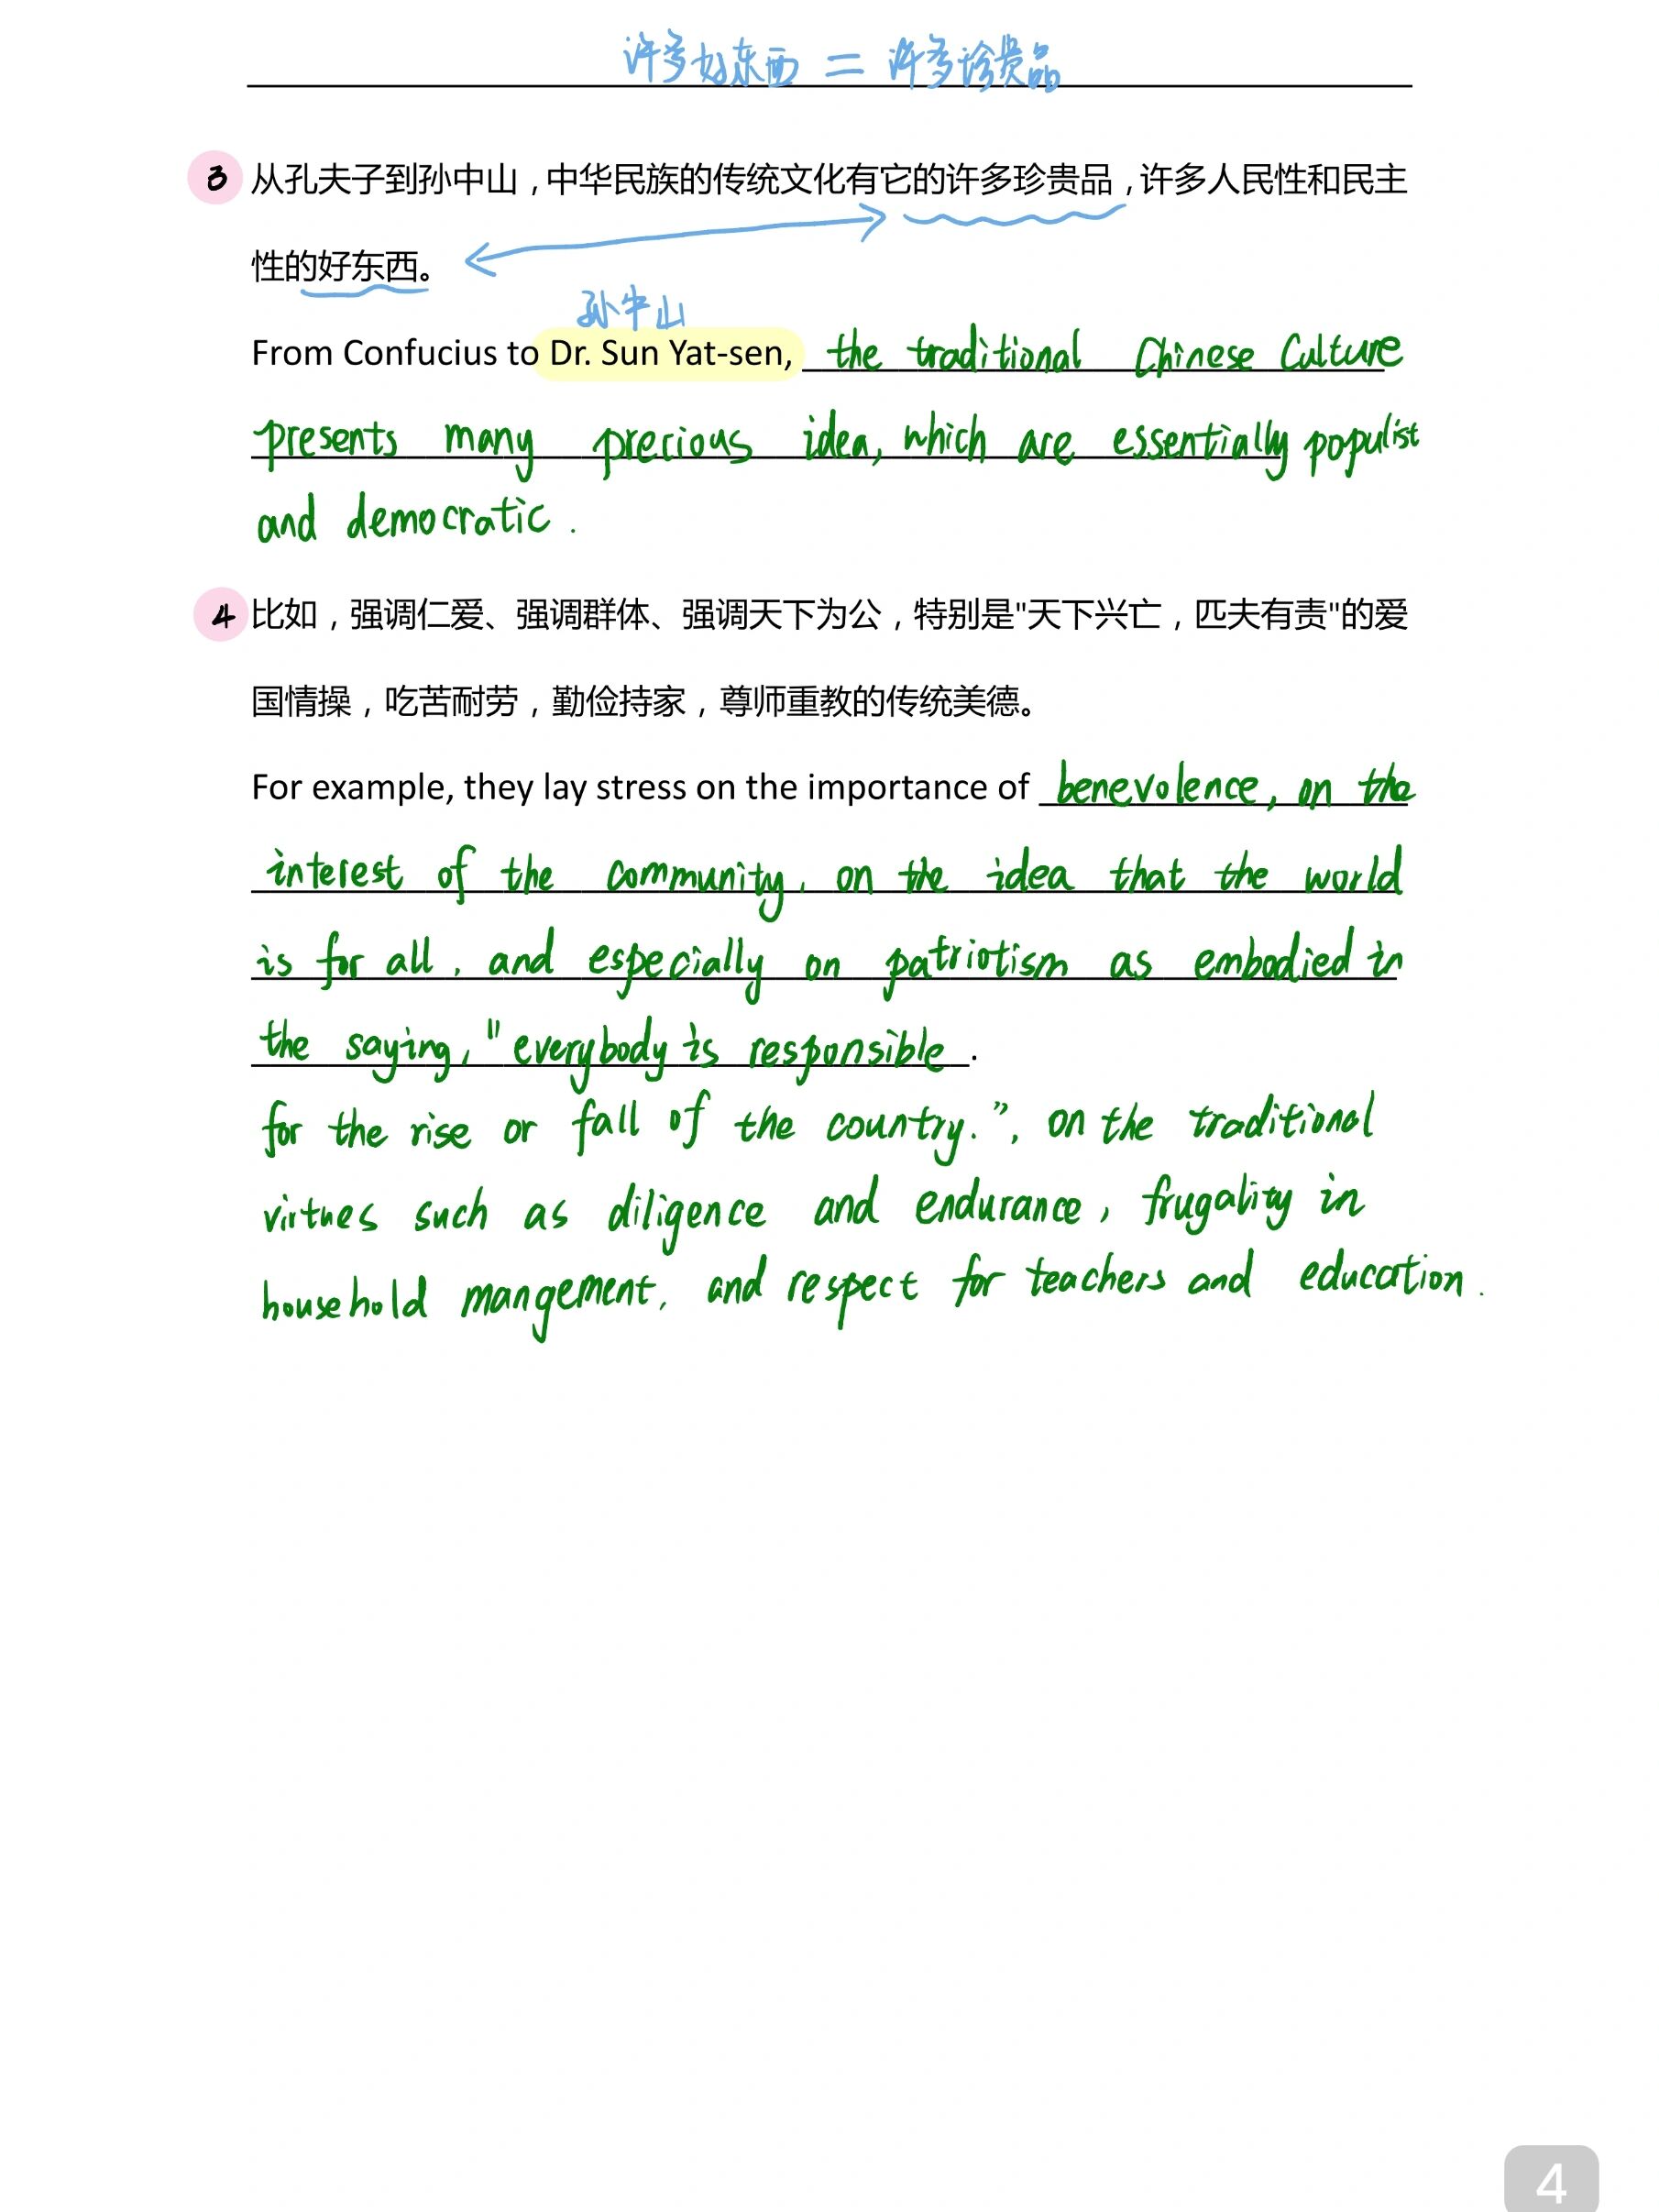 许多好东西 = 许多珍贵品
3 从孔夫子到孙中山，中华民族的传统文化有它的许多珍贵品，许多人民性和民主
性的好东西。
孙中山
From Confucius to Dr. Sun Yat-sen, the traditional Chinese Culture
presents many precious idea, which are essentially populist
and democratic.
4 比如，强调仁爱、强调群体、强调天下为公，特别是"天下兴亡，匹夫有责"的爱
国情操，吃苦耐劳，勤俭持家，尊师重教的传统美德。
For example, they lay stress on the importance of benevolence, on the
interest of the community, on the idea that the world
is for all, and especially on patriotism as embodied in
the saying, "everybody is responsible.
for the rise or fall of the country.", on the traditional
virtues such as diligence and endurance, frugality in
household mangement, and respect for teachers and education.
4